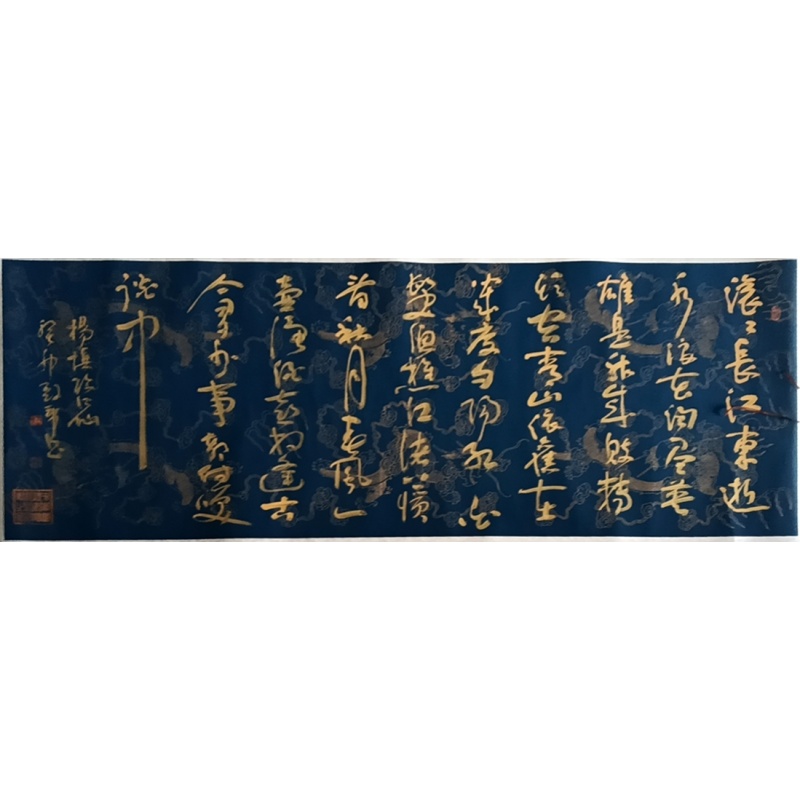 滚〻長江東逝
水浪花淘尽英
雄是非成敗轉
頭空青山依舊在
幾度夕陽紅白
髮漁樵江渚上慣
看秋月春風一
壺濁酒喜相逢古
今多少事都付笑
談中
楊慎臨江仙
癸卯